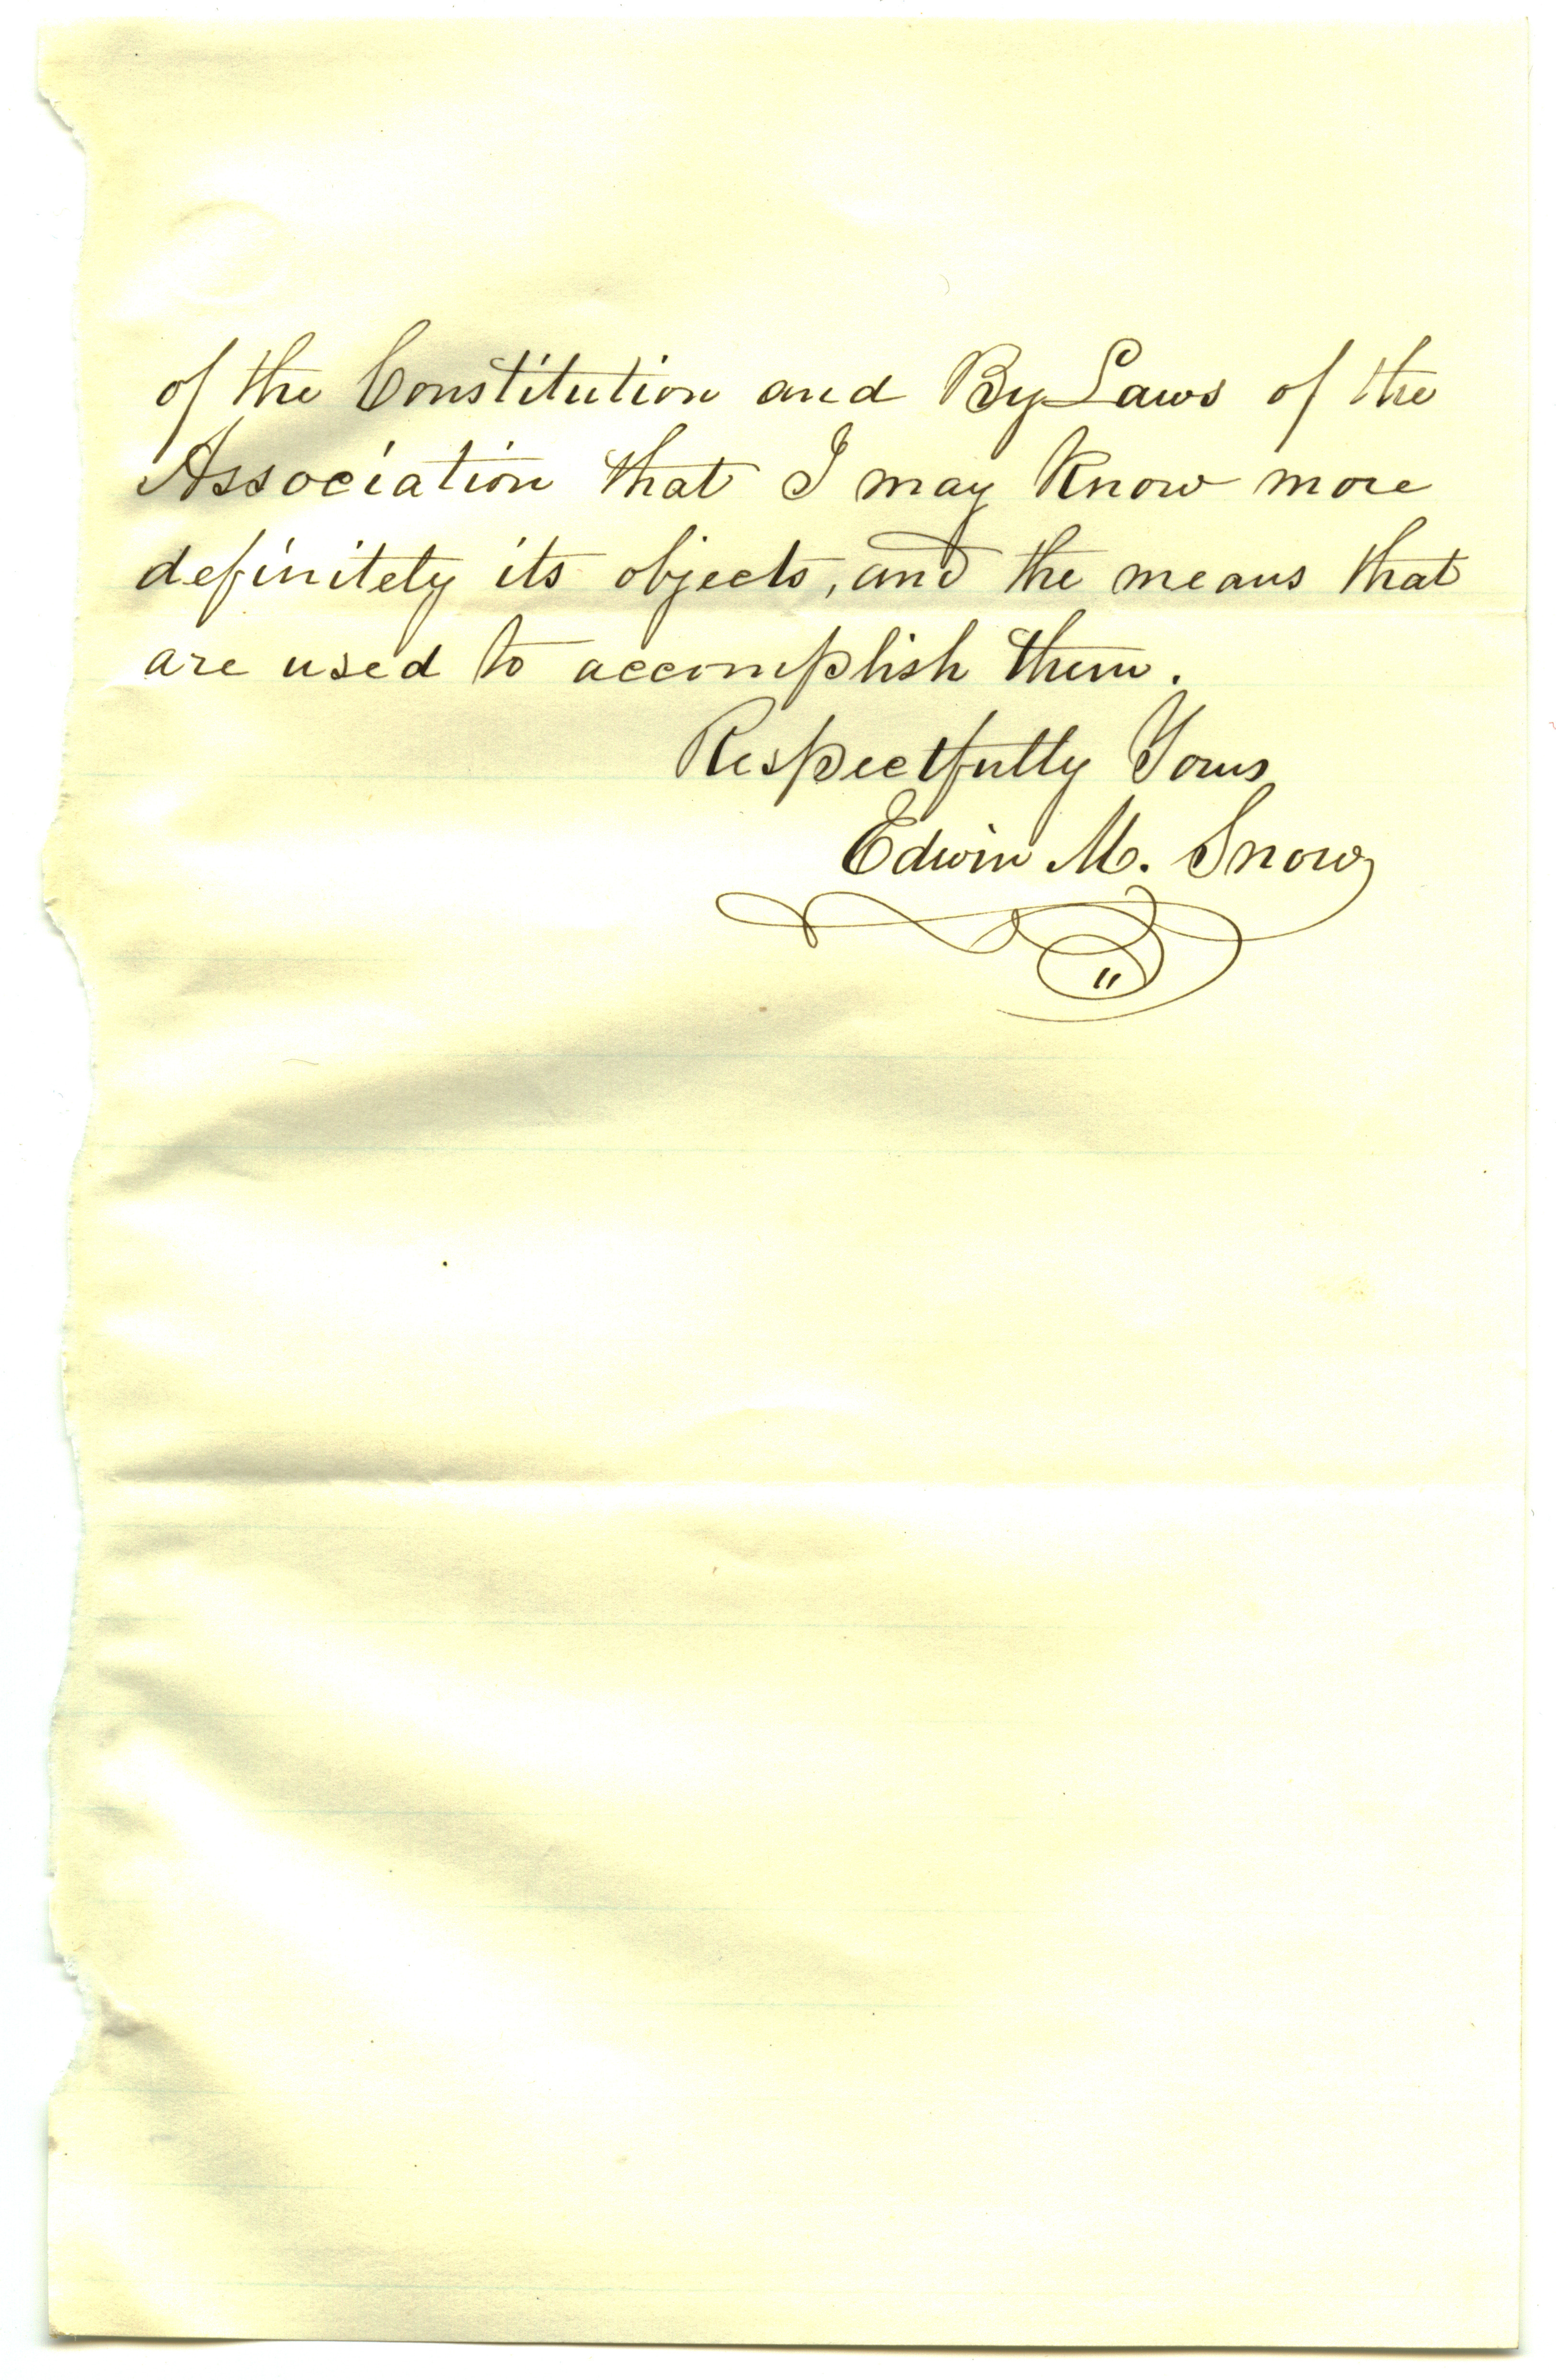 of the Constitution and By-Laws of the
Association that I may know more
definitely its objects, and the means that
are used to accomplish them.
Respectfully Yours
Edwin M. Snow
"